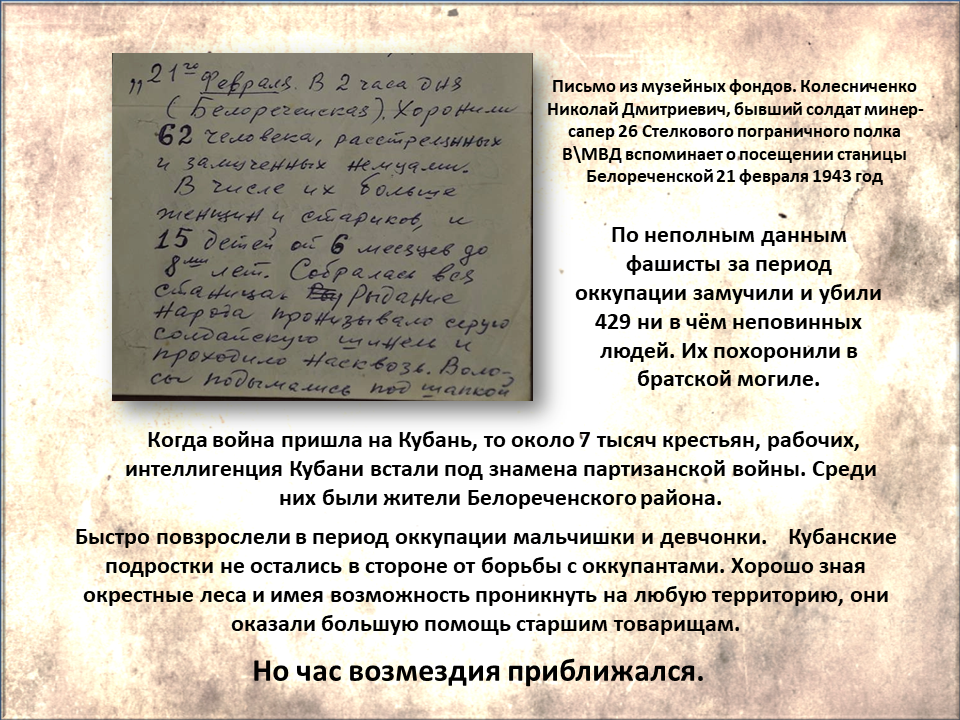 „21го Февраля. В 2 часа дня
(Белореченская). Хоронили
62 человека, расстрелянных
и замученных немцами.
В числе их больше
женщин и стариков, и
15 детей от 6 месяцев до
8ми лет. Собралась вся
станица. Рыдание
народа пронизывало серую
солдатскую шинель и
проходило насквозь. Воло-
сы подымались под шапкой
Письмо из музейных фондов. Колесниченко
Николай Дмитриевич, бывший солдат минер-
сапер 26 Стелкового пограничного полка
В\МВД вспоминает о посещении станицы
Белореченской 21 февраля 1943 год
По неполным данным
фашисты за период
оккупации замучили и убили
429 ни в чём неповинных
людей. Их похоронили в
братской могиле.
Когда война пришла на Кубань, то около 7 тысяч крестьян, рабочих,
интеллигенция Кубани встали под знамена партизанской войны. Среди
них были жители Белореченского района.
Быстро повзрослели в период оккупации мальчишки и девчонки. Кубанские
подростки не остались в стороне от борьбы с оккупантами. Хорошо зная
окрестные леса и имея возможность проникнуть на любую территорию, они
оказали большую помощь старшим товарищам.
Но час возмездия приближался.